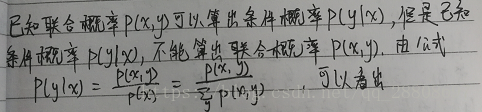 已知联合概率P(x,y)可以算出条件概率P(y|x),但是已知
条件概率P(y|x),不能算出联合概率P(x,y).由公式
P(y|x) = P(x,y) / P(x) = P(x,y) / Σ_y P(x,y) , 可以看出